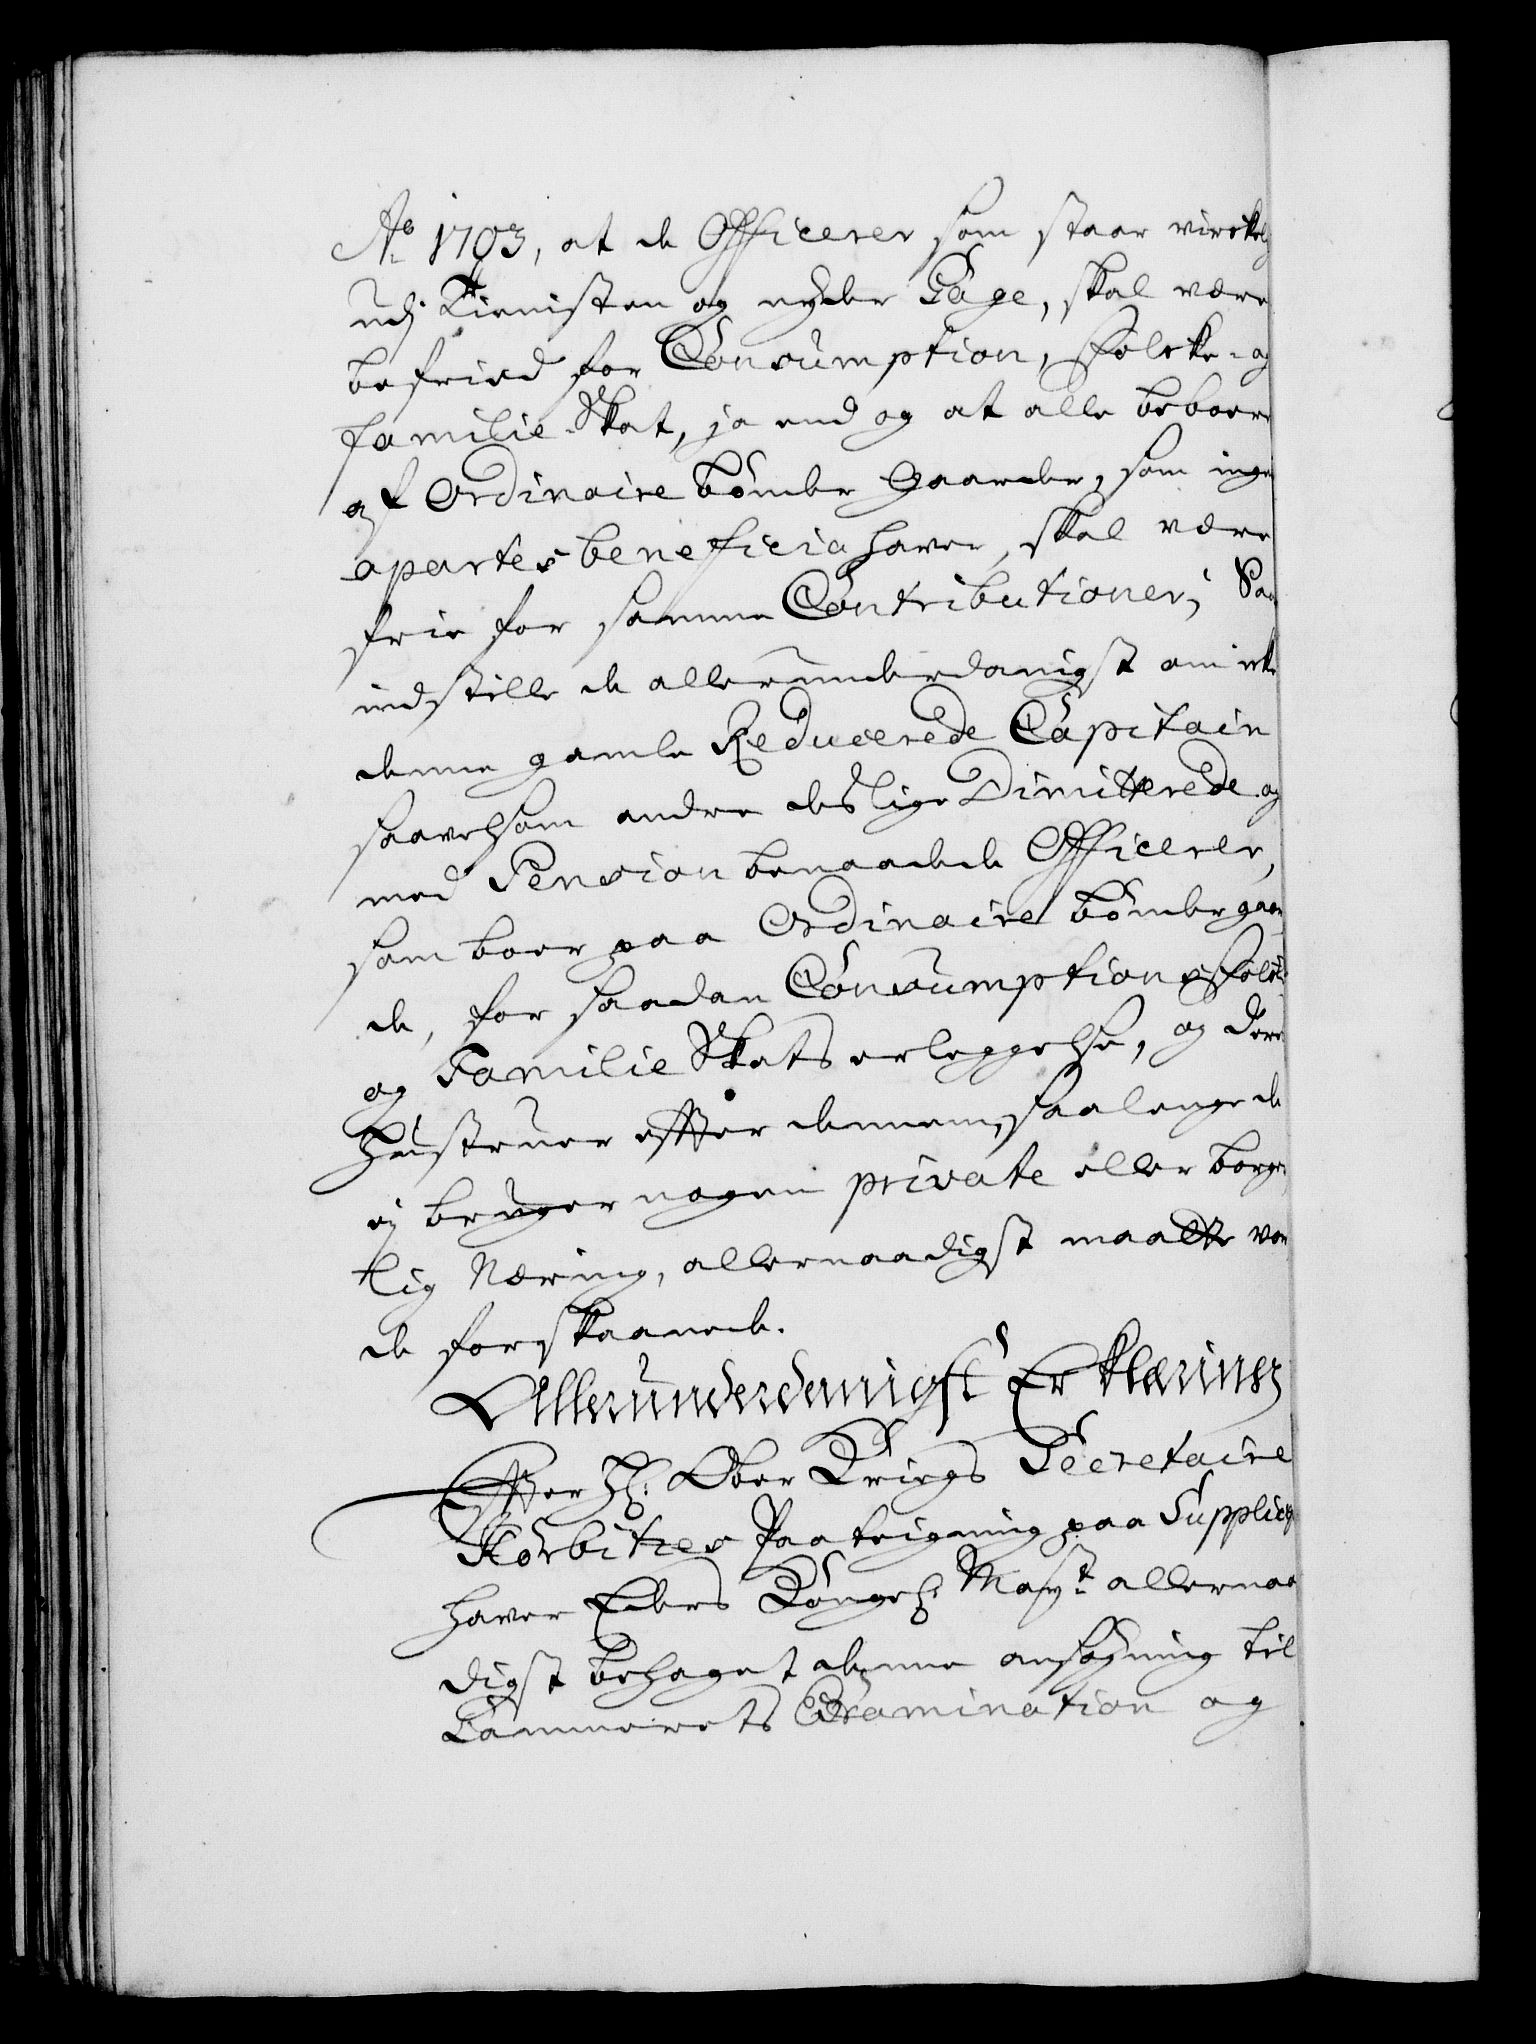 Ao 1703, at de Officerer som staar virckel
udj Tienisten og nyder Gage, skal være
befried for Consumption, Folcke- og
familie Skat, ja end og at alle beboere
af Ordinaire bønder Gaarder, som ingen
apartes beneficia haver, skal være
frie for samme Contributioner; Saa
indstille de allerunderdanigst om icke
denne gamle Reducerede Capitain
saavelsom andre deslige Dimitterede og
med Pension benaadede Officerer,
som boer paa Ordinaire bønder gaar
de, for saadan Consumptions Folcke
og Familie Skats erleggelse, og dere
Hustruer efter dennem, saa lenge de
ej bruger nogen private eller borger
lig Næring, allernaadigst maatte vor
de forskaanede.
Allerunderdanigst Erklæring
Efter H: Ober Krigs Secretaire
Korbitzes Paateigning paa Supplicqv
haver Eders Kongel: Mayt allernaa
digst behaget denne ansøgning til
Cammerets Examination og